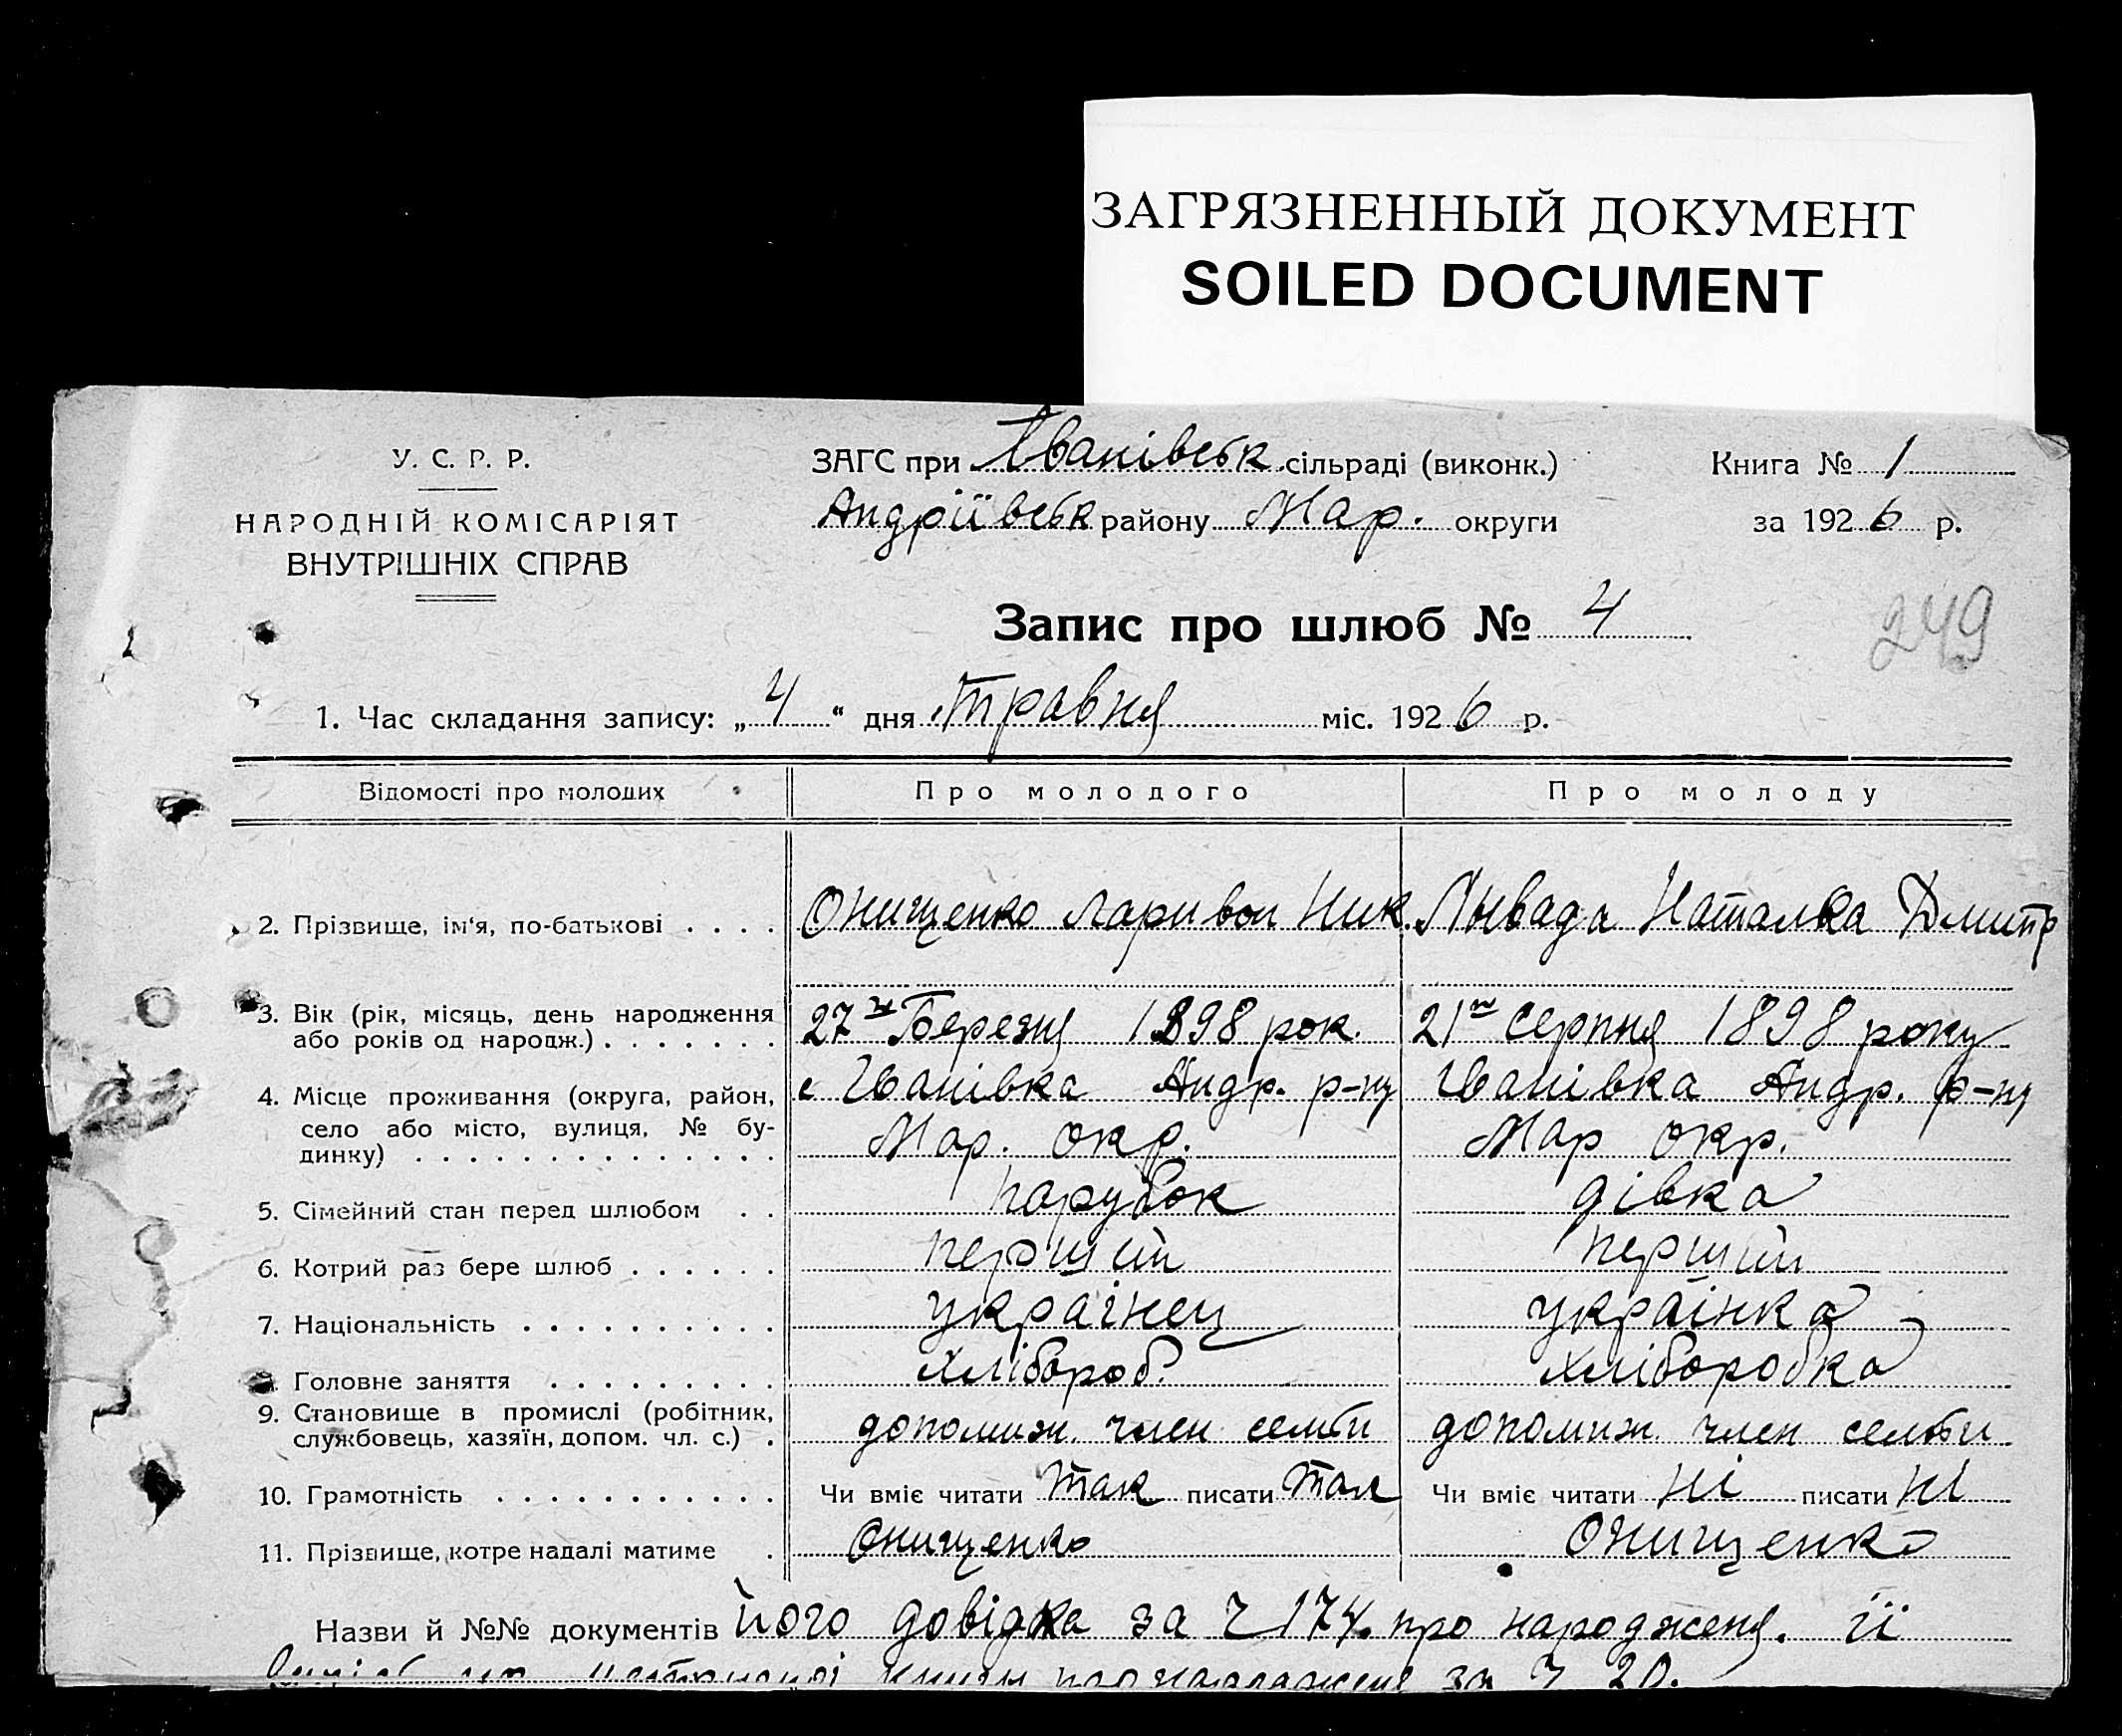 ЗАГРЯЗНЕННЫЙ ДОКУМЕНТ
SOILED DOCUMENT
У. С. Р. Р.
НАРОДНІЙ КОМІСАРІЯТ
ВНУТРІШНІХ СПРАВ
ЗАГС при Іванівськ сільраді (виконк.)
Андріївськ району Мар. округи
Книга № 1
за 1926 р.
Запис про шлюб № 4
249
1. Час складання запису: „4“ дня травня міс. 1926 р.
Відомості про молодих Про молодого Про молоду
2. Прізвище, ім'я, по-батькові . . . . Онищенко Ларивон Ник. Лывада Наталка Дмитр
3. Вік (рік, місяць, день народження 27 Березня 1898 рок. 21 серпня 1898 року
або років од народж.) . . . . . . .
4. Місце проживання (округа, район, с Іванівка Андр. р-ну Іванівка Андр. р-ну
село або місто, вулиця, № бу- Мар. окр. Мар окр.
динку) . . . . . . . . . . . . . .
5. Сімейний стан перед шлюбом . . парубок дівка
6. Котрий раз бере шлюб . . . . . . перший перший
7. Національність . . . . . . . . . . украінец украінка
Головне заняття . . . . . . . . . хлібороб. хліборобка
9. Становище в промислі (робітник, допомиж. член семьи допомиж. член семьи
службовець, хазяїн, допом. чл. с.) .
10. Грамотність . . . . . . . . . . . Чи вміє читати так писати так Чи вміє читати ні писати ні
11. Прізвище, котре надалі матиме . Онищенко Онищенко
Назви й №№ документів його довідка за Ч 174. про народженя. її
за Ч 20.